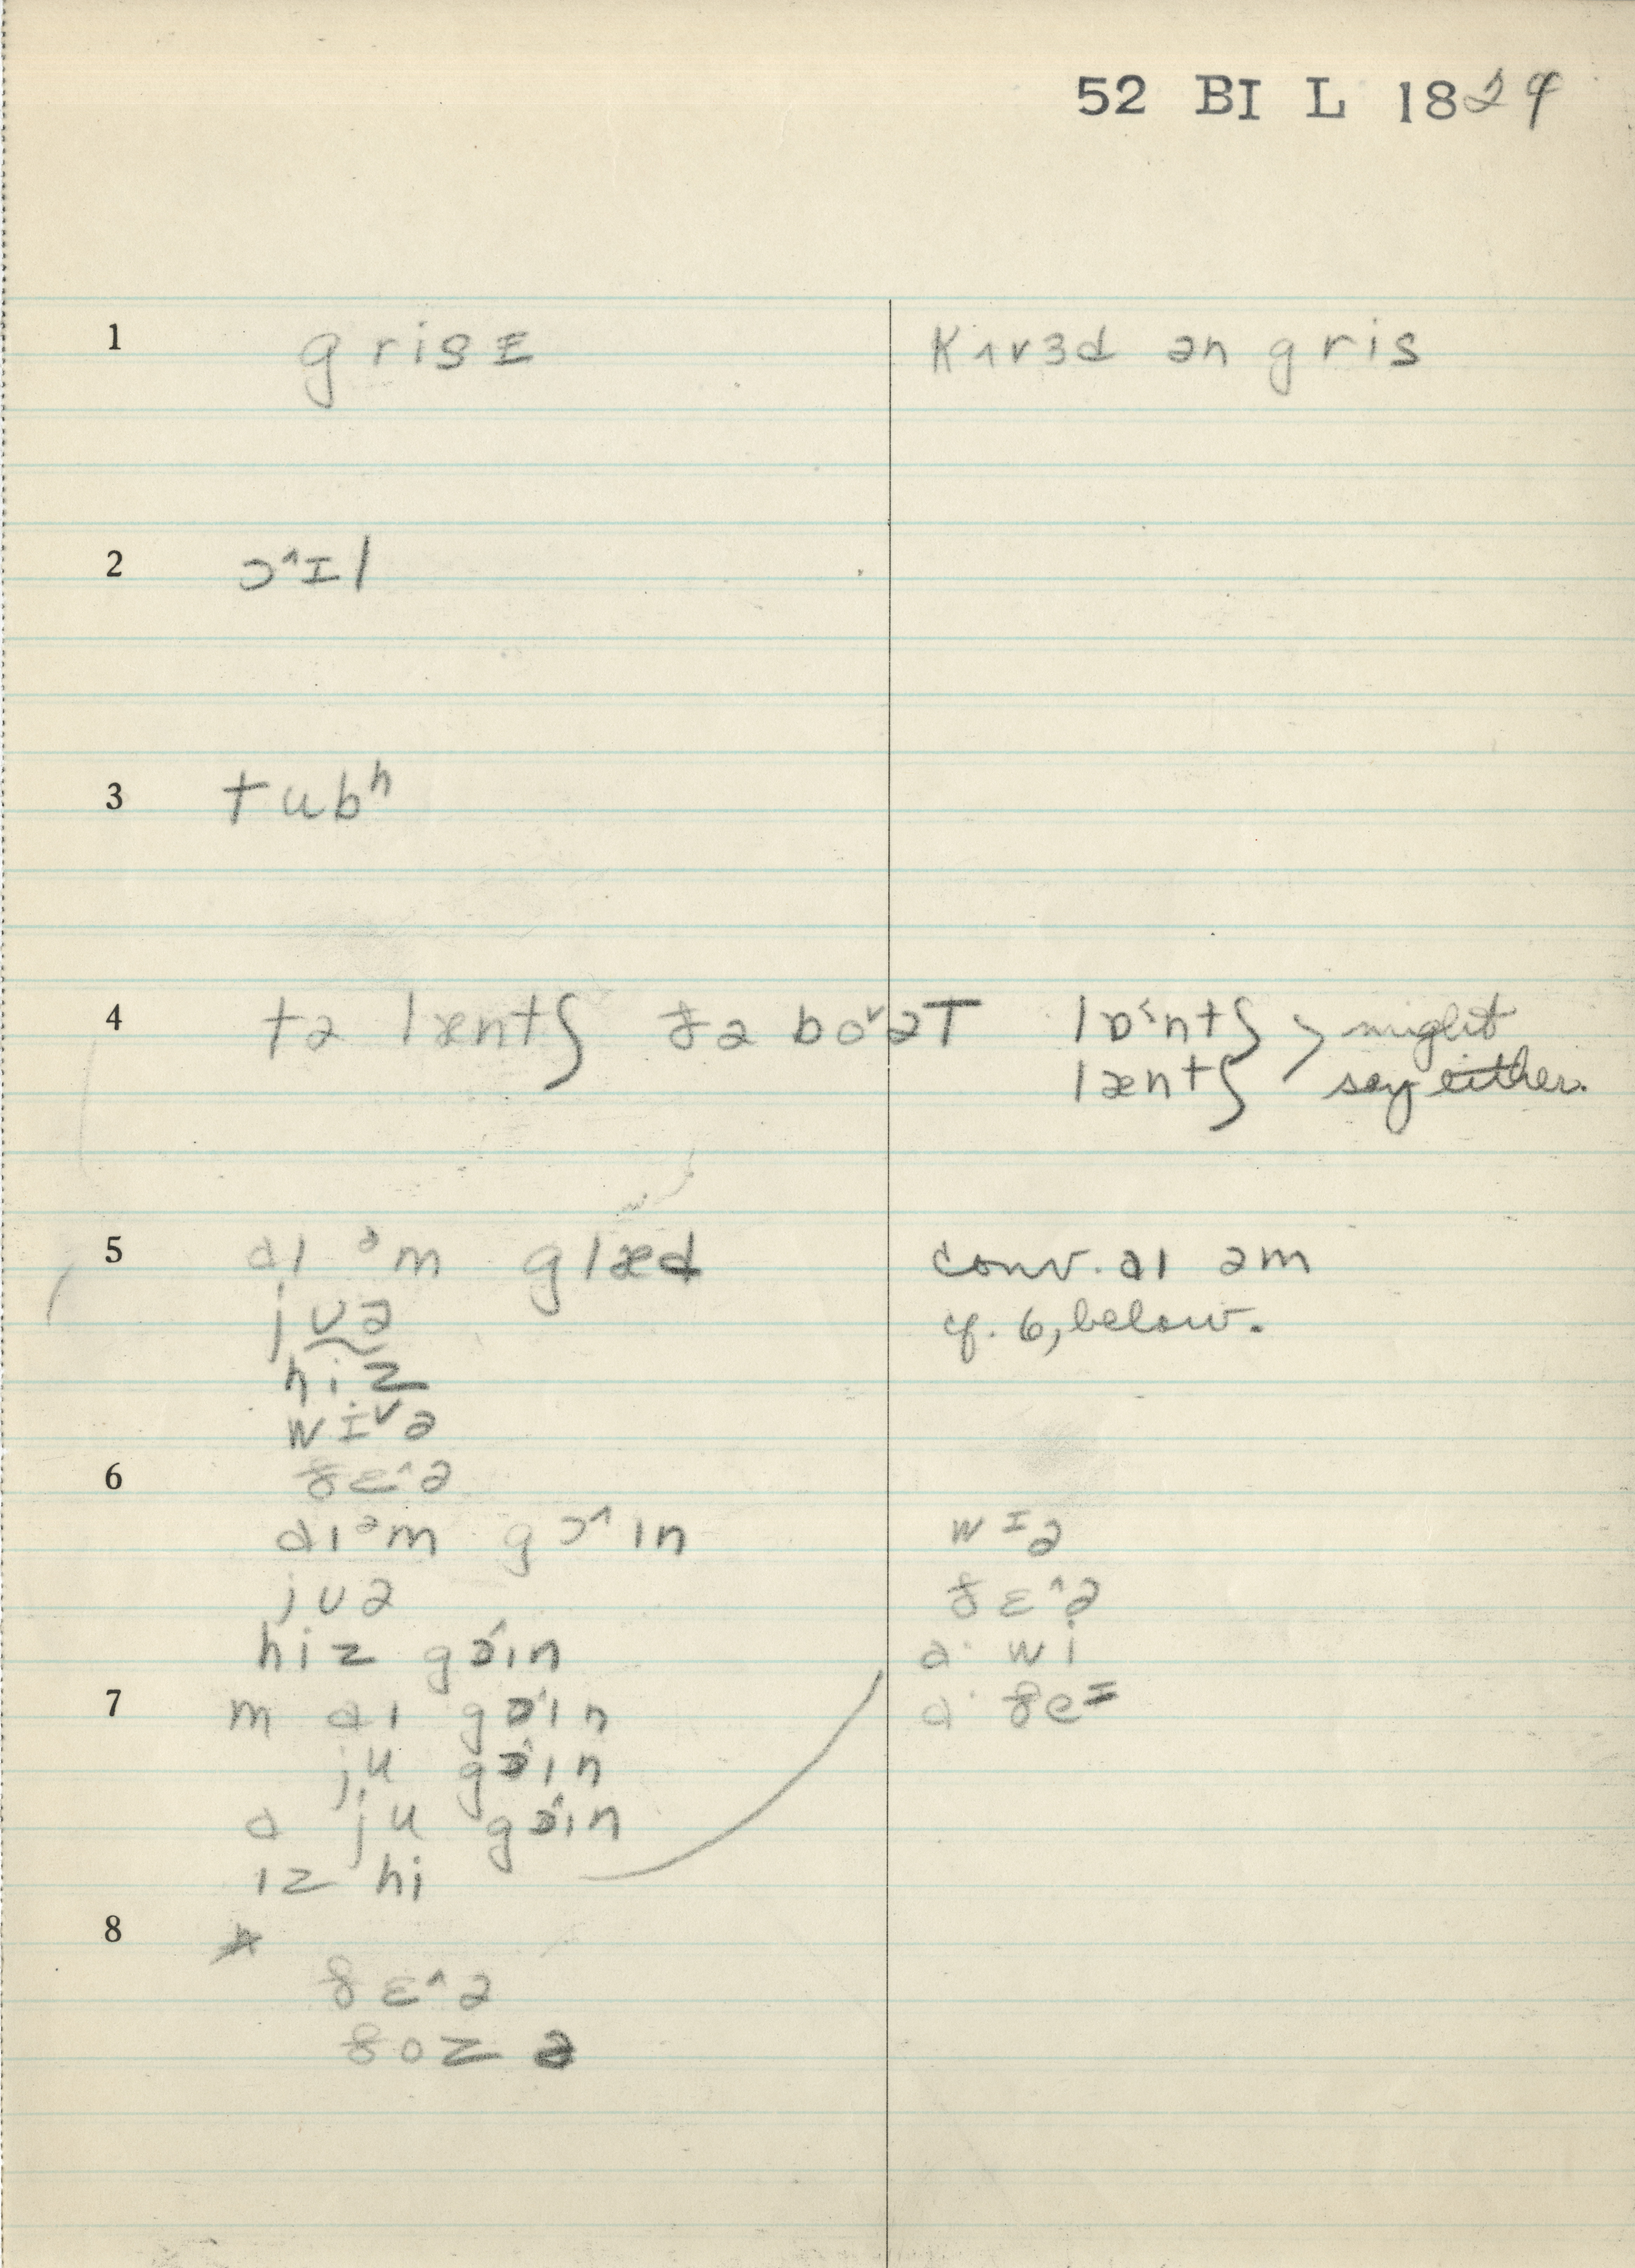 52 BI L 1824
1 grisɪ kʌvɜd ən gris
2 ɔ^ɪl
3 tubʰ
4 tə læntʃ ðə boᵛət lɒ˂ntʃ > might
læntʃ say either.
5 aɪ ᵊm glæd conv. aɪ əm
jʊə cf. 6, below.
hiz
wɪᵛə
6 ðɛ^ə
aɪᵊm gɔ^ɪn wɪə
jʊə ðɛ^ə
hiz gɔ^ɪn a· wi
7 m aɪ gɔ^ɪn a· ðeɪ
ju gɔ^ɪn
a ju gɔ^ɪn
ɪz hi
8
ðɛ^ə
ðoz ə